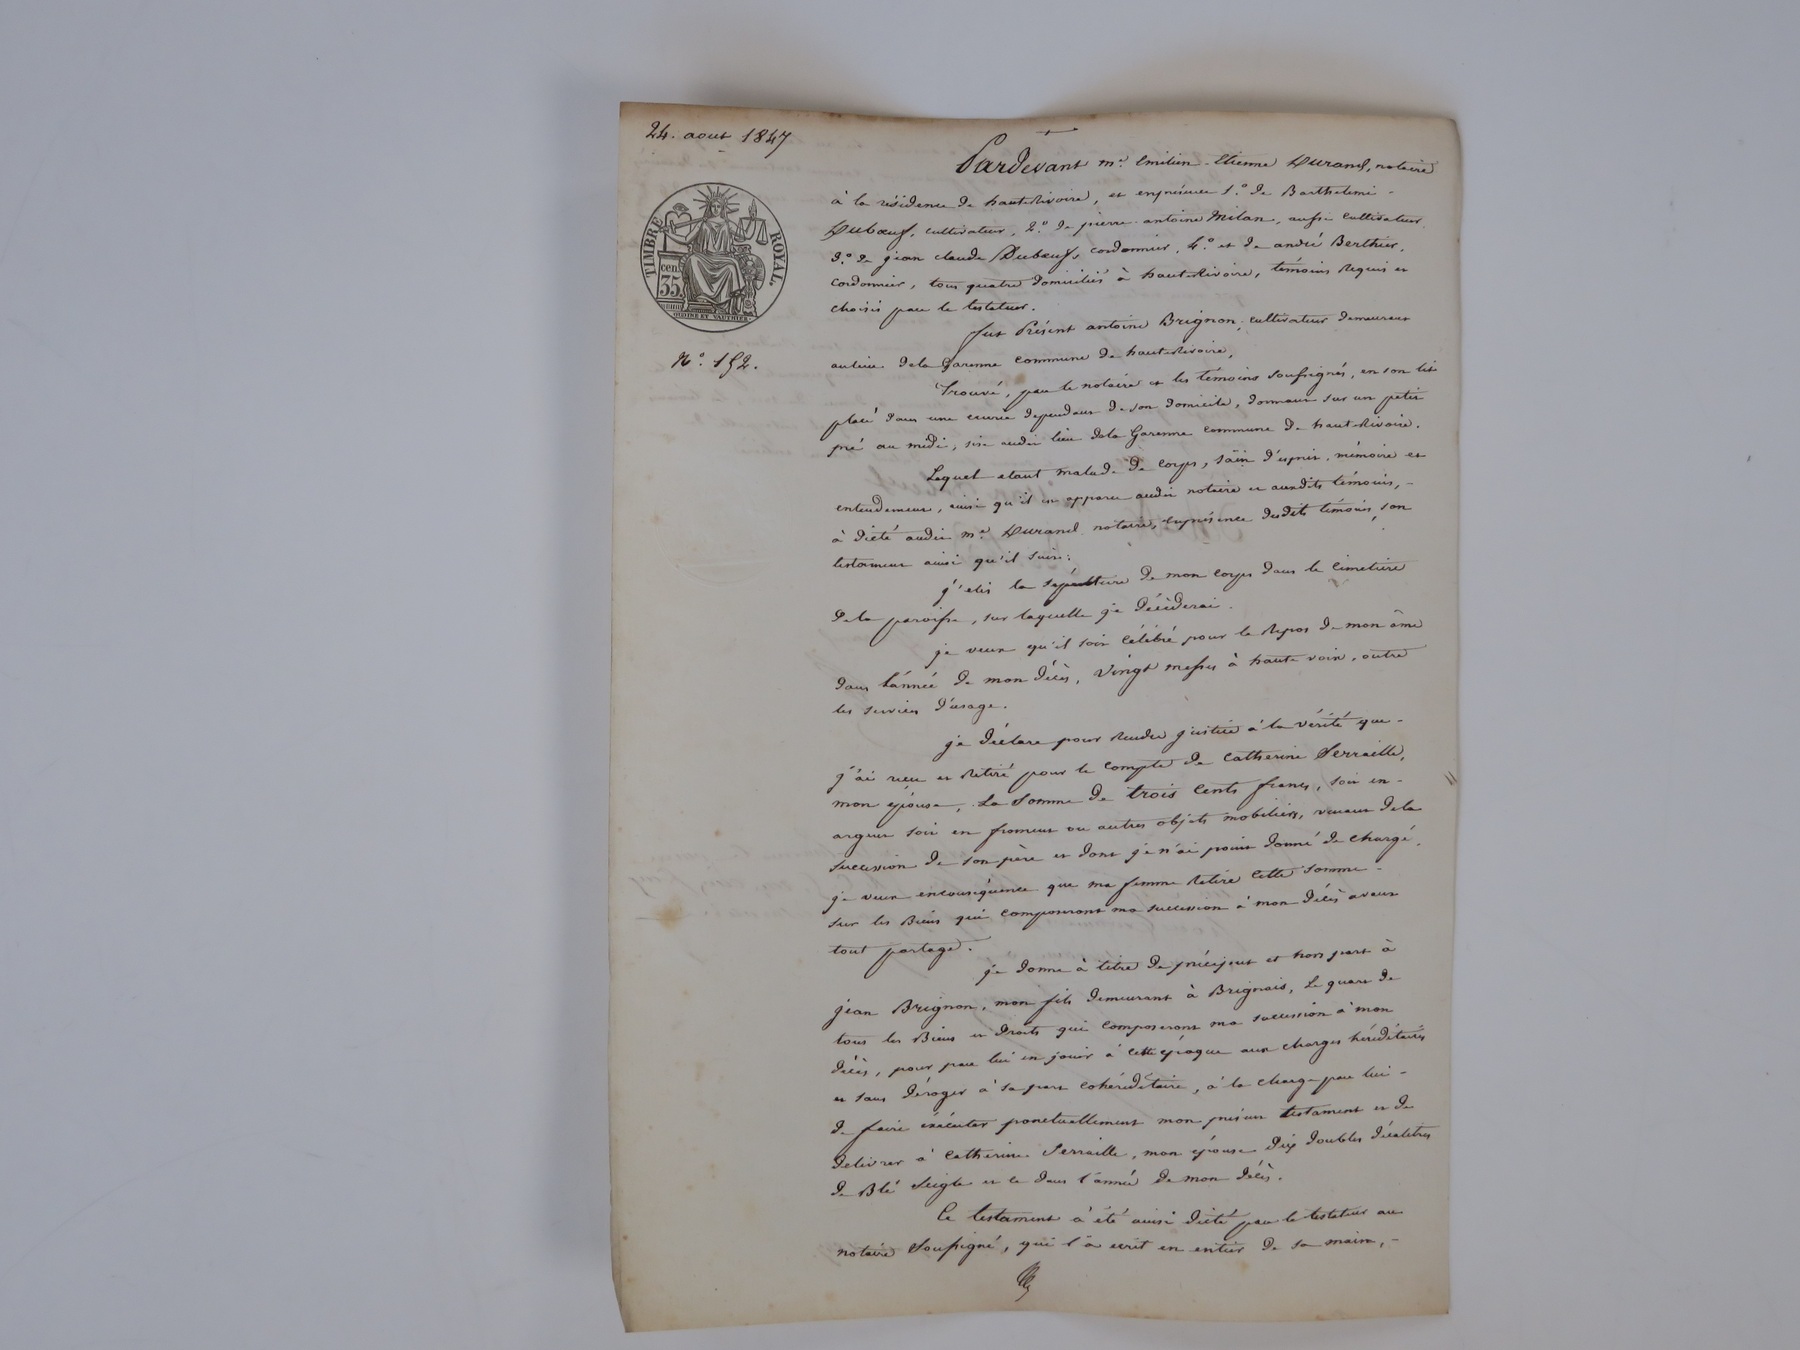 24. aout 1847
Pardevant me. Emilien-Etienne Durand, notaire
à la résidence de hauterivoire, et en présence 1.o de Barthelemi-
Duboeuf, cultivateur, 2.o de pierre-antoine Milan, aussi cultivateur
3.o de jean claude Duboeuf, cordonnier, 4.o et de andré Berthier,
cordonnier, tous quatre domiciliés à hauterivoire, témoins requis et
choisis par le testateur.
TIMBRE ROYAL.
cen. 35.
N.o 152.
fut Présent antoine Brignon, cultivateur demeurant
au lieu dela Garenne commune de hauterivoire,
Trouvé, par le notaire et les témoins soussignés, en son lit
placé dans une écurie dépendant de son domicile, donnant sur un petit
pré au midi, sise audit lieu dela Garenne commune de hauterivoire.
Lequel étant malade de corps, sain d'esprit, mémoire et
entendement, ainsi qu'il est apparu audit notaire et auxdits témoins, -
à dicté audit me. Durand notaire, en présence desdits témoins, son
testament ainsi qu'il suit:
j'elis la sépulture de mon corps dans le cimetière
dela paroisse, sur laquelle je décèderai.
je veux qu'il soit célébré pour le repos de mon âme
dans l'année de mon décès, vingt messes à haute voix, outre
les services d'usage.
je déclare pour rendre justice à la vérité que -
j'ai reçu et retiré pour le compte de Catherine Serraille,
mon épouse, la somme de trois cents francs, soit en -
argent soit en froment ou autres objets mobiliers, venant dela
succession de son père et dont je n'ai point donné de chargé.
je veux en conséquence que ma femme retire cette somme -
sur les Biens qui composeront ma succession à mon décès avant
tout partage.
je donne à titre de préciput et hors part à
jean Brignon, mon fils demeurant à Brignais, le quart de
tous les Biens et droits qui composeront ma succession à mon
décès, pour par lui en jouir à cette époque aux charges héréditaires
et sans déroger à sa part cohéréditaire, à la charge par lui -
de faire éxécuter ponctuellement mon présent testament et de
delivrer à Catherine Serraille, mon épouse dix doubles décalitres
de Blé Seigle et ce dans l'année de mon décès.
Ce testament à été ainsi dicté par le testateur au
notaire soussigné, qui l'a écrit en entier de sa main, -